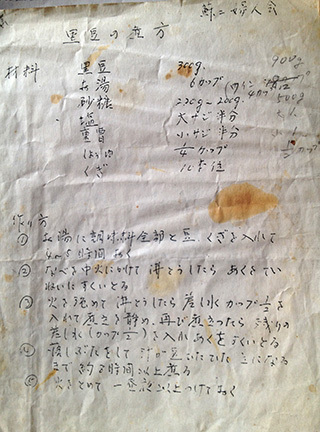 蘇二婦人会
黒豆の煮方
材料 黒豆 300g 900g
お湯 6カップ
砂糖 220g~200g 500g
塩 大サジ半分
重曹 小サジ半分
しょうゆ 1/4カップ カップ
くぎ 10本位
作り方
① お湯に調味料全部と豆、くぎを入れて
4~5時間おく
② なべを中火にかけて沸とうしたら あくをてい
ねいにすくいとる
③ 火を強めて沸とうしたら差し水カップ1/2を
入れて煮立を静め、再び煮立ったら 残りの
差し水(カップ1/2)を入れあくをすくいとる
④ 落しぶたをして 汁が豆 になる
まで約 時間以上煮る
⑤ 火をとめて一昼夜以上つけておく